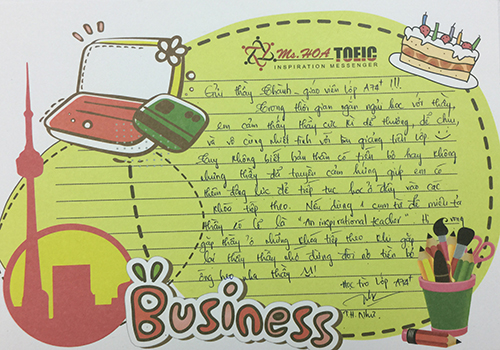 Ms.HOA TOEIC
INSPIRATION MESSENGER
Gửi thầy Khánh - giáo viên lớp A79+ !!!
Trong thời gian ngắn ngủi học với thầy,
em cảm thấy thầy cực kì dễ thương, dễ chịu,
và vô cùng nhiệt tình với bài giảng trên lớp
Tuy không biết bản thân có tiến bộ hay không
nhưng thầy đã truyền cảm hứng giúp em có
thêm động lực để tiếp tục học ở đây vào các
khóa tiếp theo. Nếu dùng 1 cụm từ để miêu tả
thầy có lẽ là "An inspirational teacher". Hi vọng
gặp thầy ở những khóa tiếp theo. Khi gặp
lại thầy thầy nhớ đừng đòi nợ tiền
ống heo nha thầy
Học trò lớp A79+
H. Như
Business